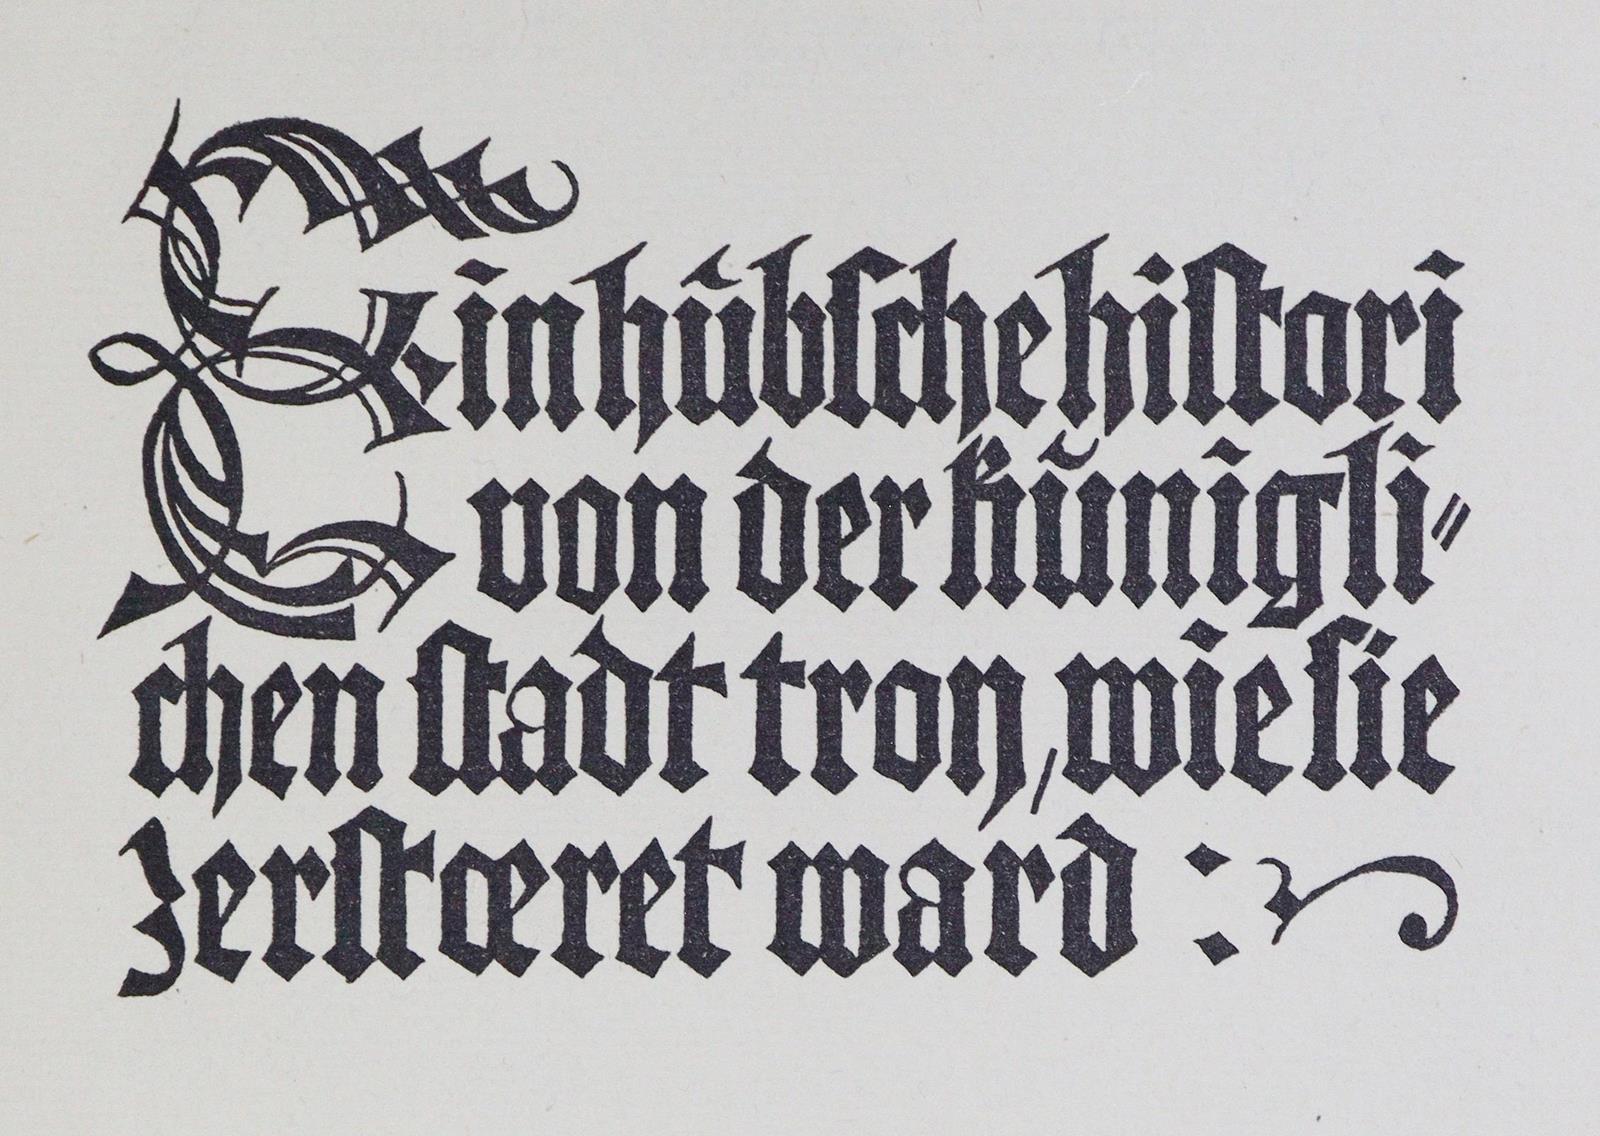 Ein hübsche histori
von der künigli=
chen stadt troy, wie sie
zerstœret ward :~